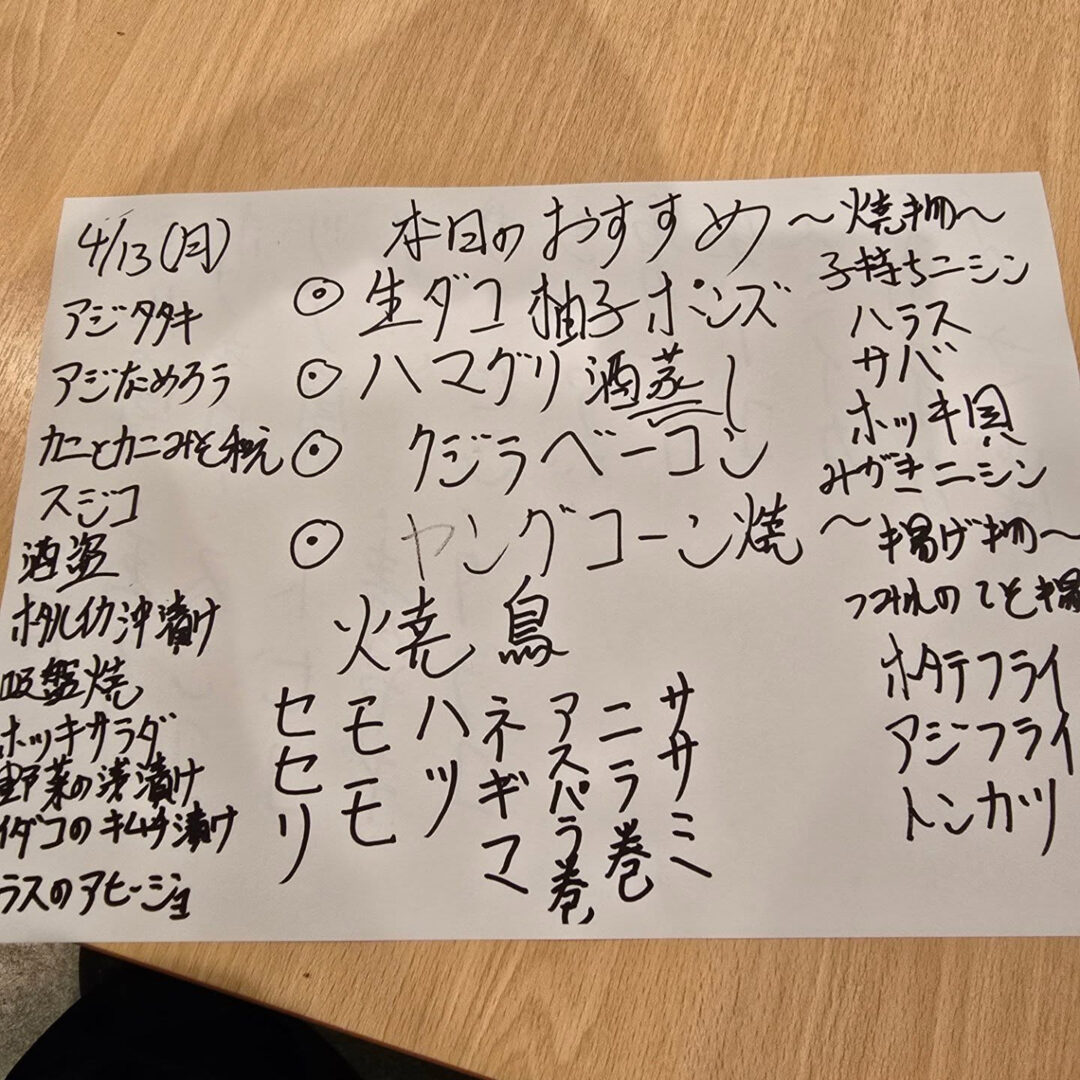 4/13(月)
本日のおすすめ
アジタタキ
アジなめろう
カニとカニみそ和え
スジコ
酒盗
ホタルイカ沖漬け
吸盤焼
ホッキサラダ
野菜の浅漬け
イダコのキムチ漬け
ラスのアヒージョ
◉生ダコ柚子ポンズ
◉ハマグリ酒蒸し
◉クジラベーコン
◉ヤングコーン焼
焼鳥
セセリ
モモ
ハツ
ネギマ
アスパラ巻
ニラ巻
ササミ
〜焼き物〜
子持ちニシン
ハラス
サバ
ホッキ貝
みがきニシン
〜揚げ物〜
つみれのてそ揚
ホタテフライ
アジフライ
トンカツ